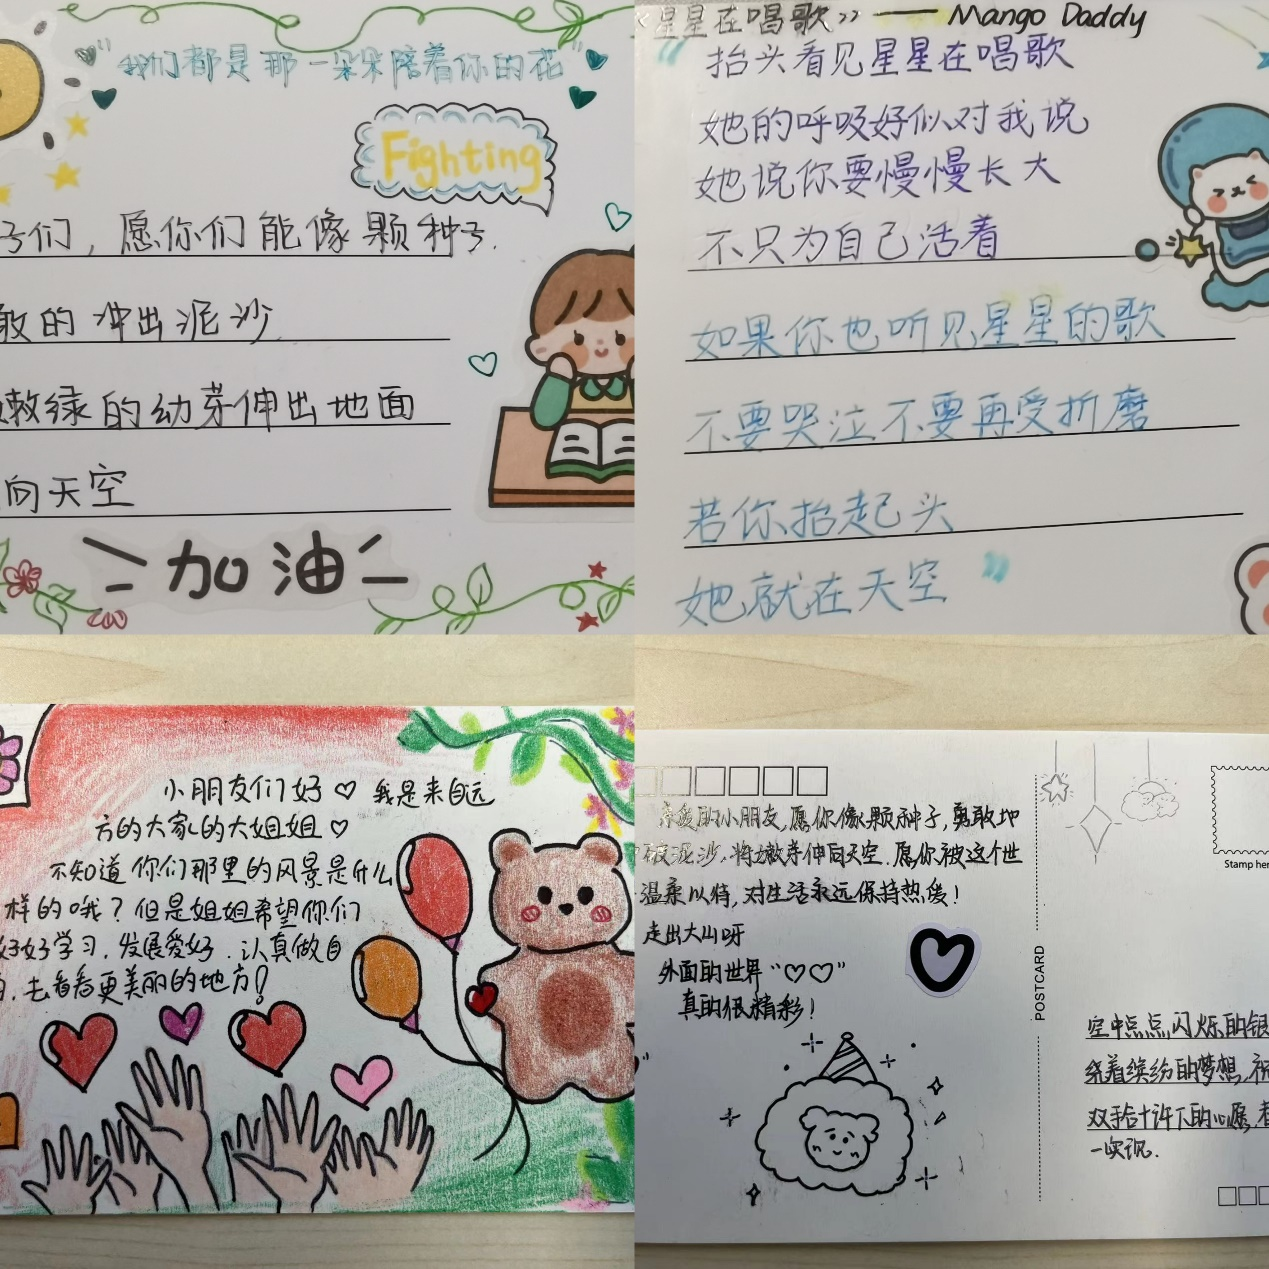 "我们都是那一朵朵陪着你的花"
Fighting
子们，愿你们能像颗种子.
敢的冲出泥沙
嫩绿的幼芽伸出地面
向天空
加油
《星星在唱歌》—— Mango Daddy
"抬头看见星星在唱歌
她的呼吸好似对我说
她说你要慢慢长大
不只为自己活着
如果你也听见星星的歌
不要哭泣不要再受折磨
若你抬起头
她就在天空"
小朋友们好♡ 我是来自远
方的大家的大姐姐♡
不知道你们那里的风景是什么
样的哦？但是姐姐希望你们
好好学习，发展爱好，认真做自
，去看看更美丽的地方！
亲爱的小朋友，愿你像颗种子，勇敢地
破泥沙，将嫩芽伸向天空.愿你被这个世
温柔以待，对生活永远保持热爱！
走出大山呀
外面的世界"♡♡"
真的很精彩！
Stamp her
POSTCARD
空中点点闪烁的银
绕着缤纷的梦想，祝
双手合十许下的心愿，都
一实现.